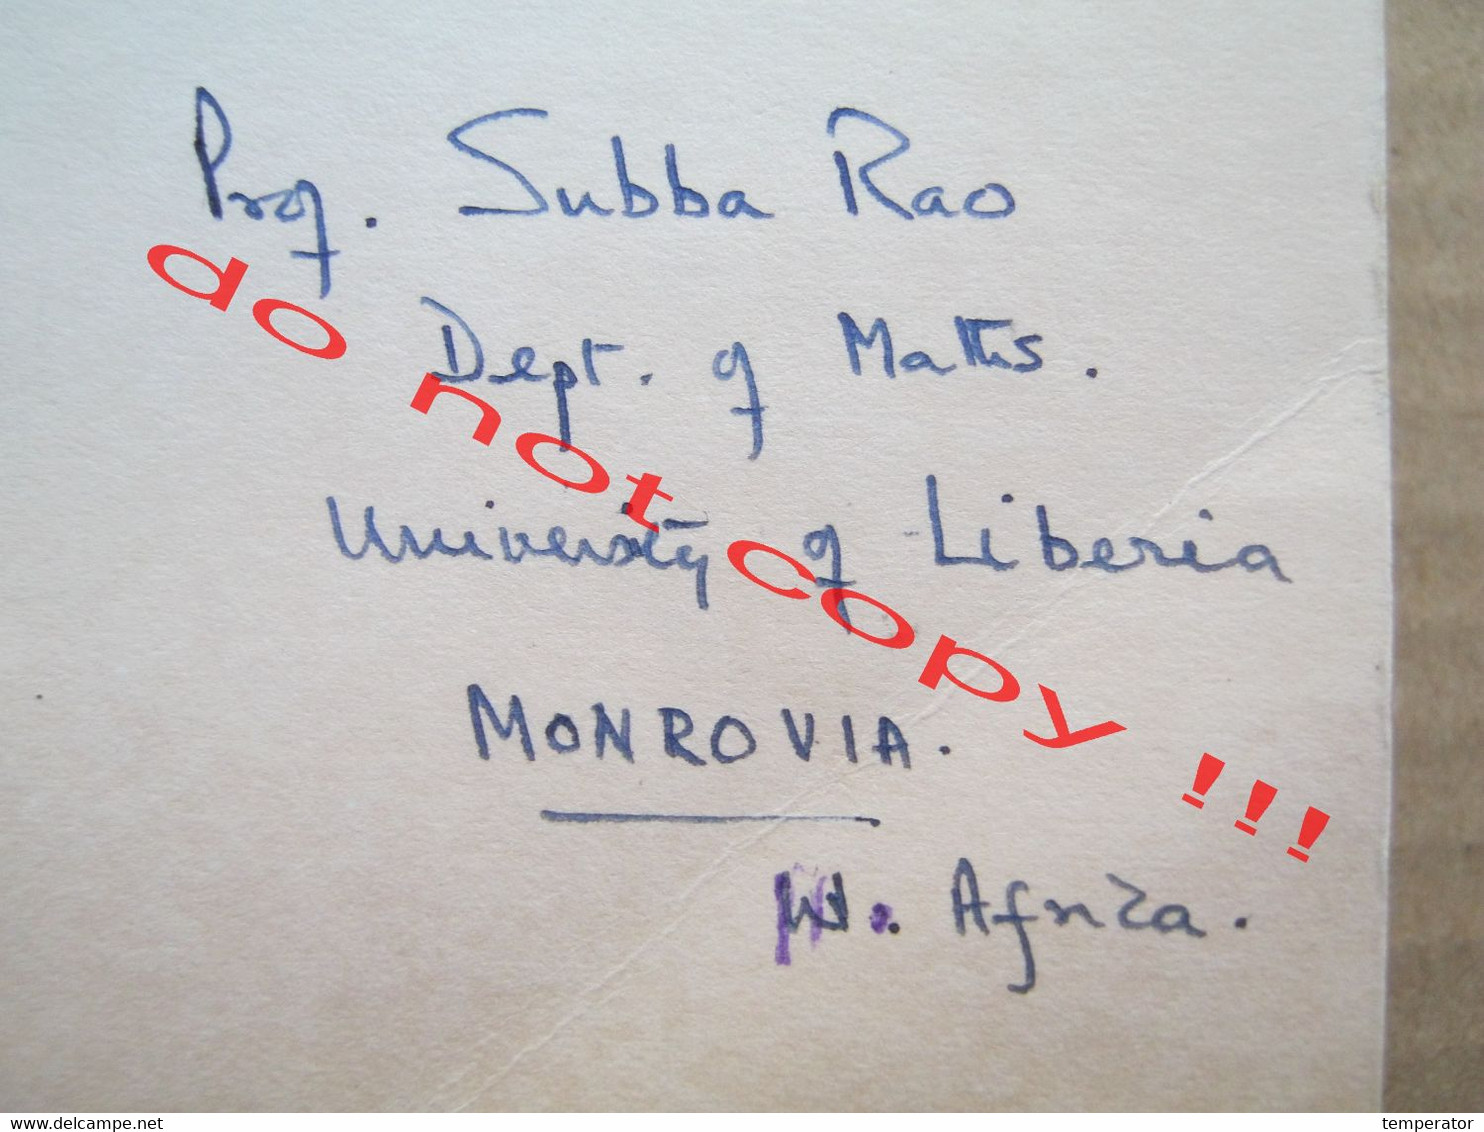 Prof. Subba Rao
Dept. of Maths.
University of Liberia
MONROVIA.
W. Africa.
do not copy !!!
www.delcampe.net
temperator